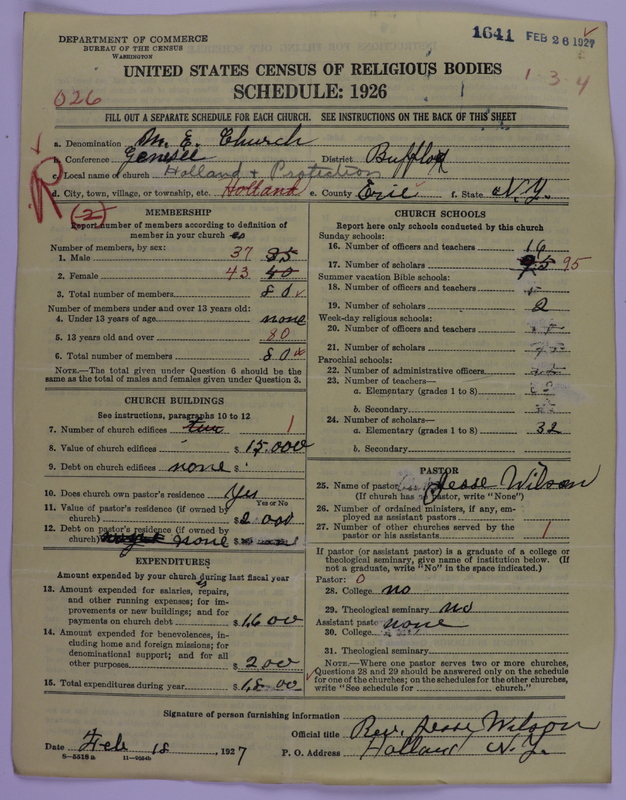 DEPARTMENT OF COMMERCE
BUREAU OF THE CENSUS
WASHINGTON
1641 FEB 26 1927
UNITED STATES CENSUS OF RELIGIOUS BODIES
SCHEDULE: 1926
1-3-4
026
FILL OUT A SEPARATE SCHEDULE FOR EACH CHURCH. SEE INSTRUCTIONS ON THE BACK OF THIS SHEET
a. Denomination M. E. Church
b. Conference Genesee District Buffalo
c. Local name of church Holland & Protection
d. City, town, village, or township, etc. Holland e. County Erie f. State N.Y.
R
(2)
MEMBERSHIP
Report number of members according to definition of
member in your church
Number of members, by sex:
1. Male 37 35
2. Female 43 40
3. Total number of members 80
Number of members under and over 13 years old:
4. Under 13 years of age none
5. 13 years old and over 80
6. Total number of members 80
NOTE.—The total given under Question 6 should be
same as the total of males and females given under Question 3.
CHURCH BUILDINGS
See instructions, paragraphs 10 to 12
7. Number of church edifices two 1
8. Value of church edifices $15.000
9. Debt on church edifices none $
10. Does church own pastor's residence Yes
Yes or No
11. Value of pastor's residence (if owned by
church) $2000
12. Debt on pastor's residence (if owned by
church) none $
EXPENDITURES
Amount expended by your church during last fiscal year
13. Amount expended for salaries, repairs,
and other running expenses; for im-
provements or new buildings; and for
payments on church debt $1600
14. Amount expended for benevolences, in-
cluding home and foreign missions; for
denominational support; and for all
other purposes $200
15. Total expenditures during year $1800
CHURCH SCHOOLS
Report here only schools conducted by this church
Sunday schools:
16. Number of officers and teachers 16
17. Number of scholars 95 95
Summer vacation Bible schools:
18. Number of officers and teachers
19. Number of scholars 2
Week-day religious schools:
20. Number of officers and teachers
21. Number of scholars
Parochial schools:
22. Number of administrative officers
23. Number of teachers—
a. Elementary (grades 1 to 8)
b. Secondary
24. Number of scholars—
a. Elementary (grades 1 to 8) 32
b. Secondary
PASTOR
25. Name of pastor Jesse Wilson
(If church has no pastor, write "None")
26. Number of ordained ministers, if any, em-
ployed as assistant pastors
27. Number of other churches served by the
pastor or his assistants 1
If pastor (or assistant pastor) is a graduate of a college or
theological seminary, give name of institution below. (If
not a graduate, write "No" in the space indicated.)
Pastor: 0
28. College no
29. Theological seminary no
Assistant pastor: none
30. College
31. Theological seminary
NOTE.—Where one pastor serves two or more churches,
Questions 28 and 29 should be answered only on the schedule
for one of the churches; on the schedules for the other churches,
write "See schedule for church."
Signature of person furnishing information
Official title Rev. Jesse Wilson
Date Feb 18, 1927 P. O. Address Holland N.Y.
8-5518a 11-9264b